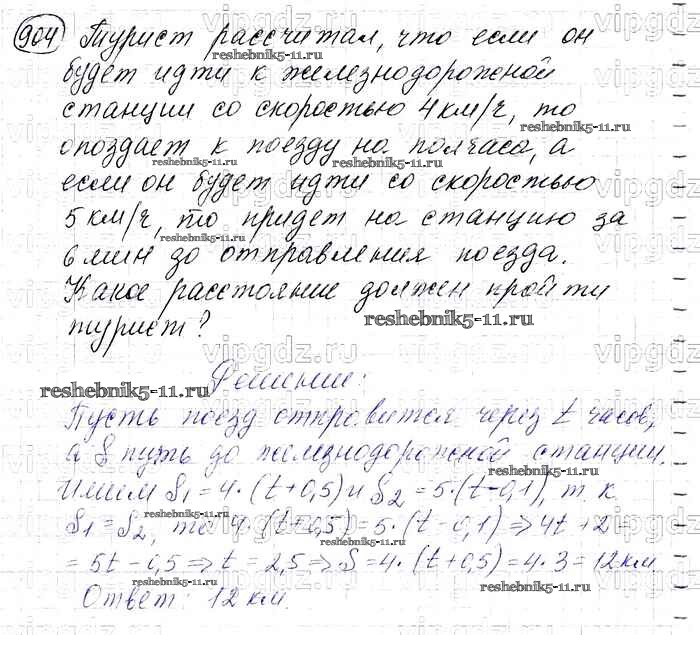 904 Турист рассчитал, что если он
будет идти к железнодорожной
станции со скоростью 4 км/ч, то
опоздает к поезду на полчаса, а
если он будет идти со скоростью
5 км/ч, то придет на станцию за
6 мин до отправления поезда.
Какое расстояние должен пройти
турист?
Решение:
Пусть поезд отправится через t часов,
а S путь до железнодорожной станции.
Имеем S₁ = 4·(t+0,5) и S₂ = 5·(t-0,1), т. к.
S₁ = S₂, то 4·(t+0,5) = 5·(t-0,1) ⇒ 4t + 2 =
= 5t - 0,5 ⇒ t = 2,5 ⇒ S = 4·(t+0,5) = 4·3 = 12 км
Ответ: 12 км.
reshebnik5-11.ru
vipgdz.ru